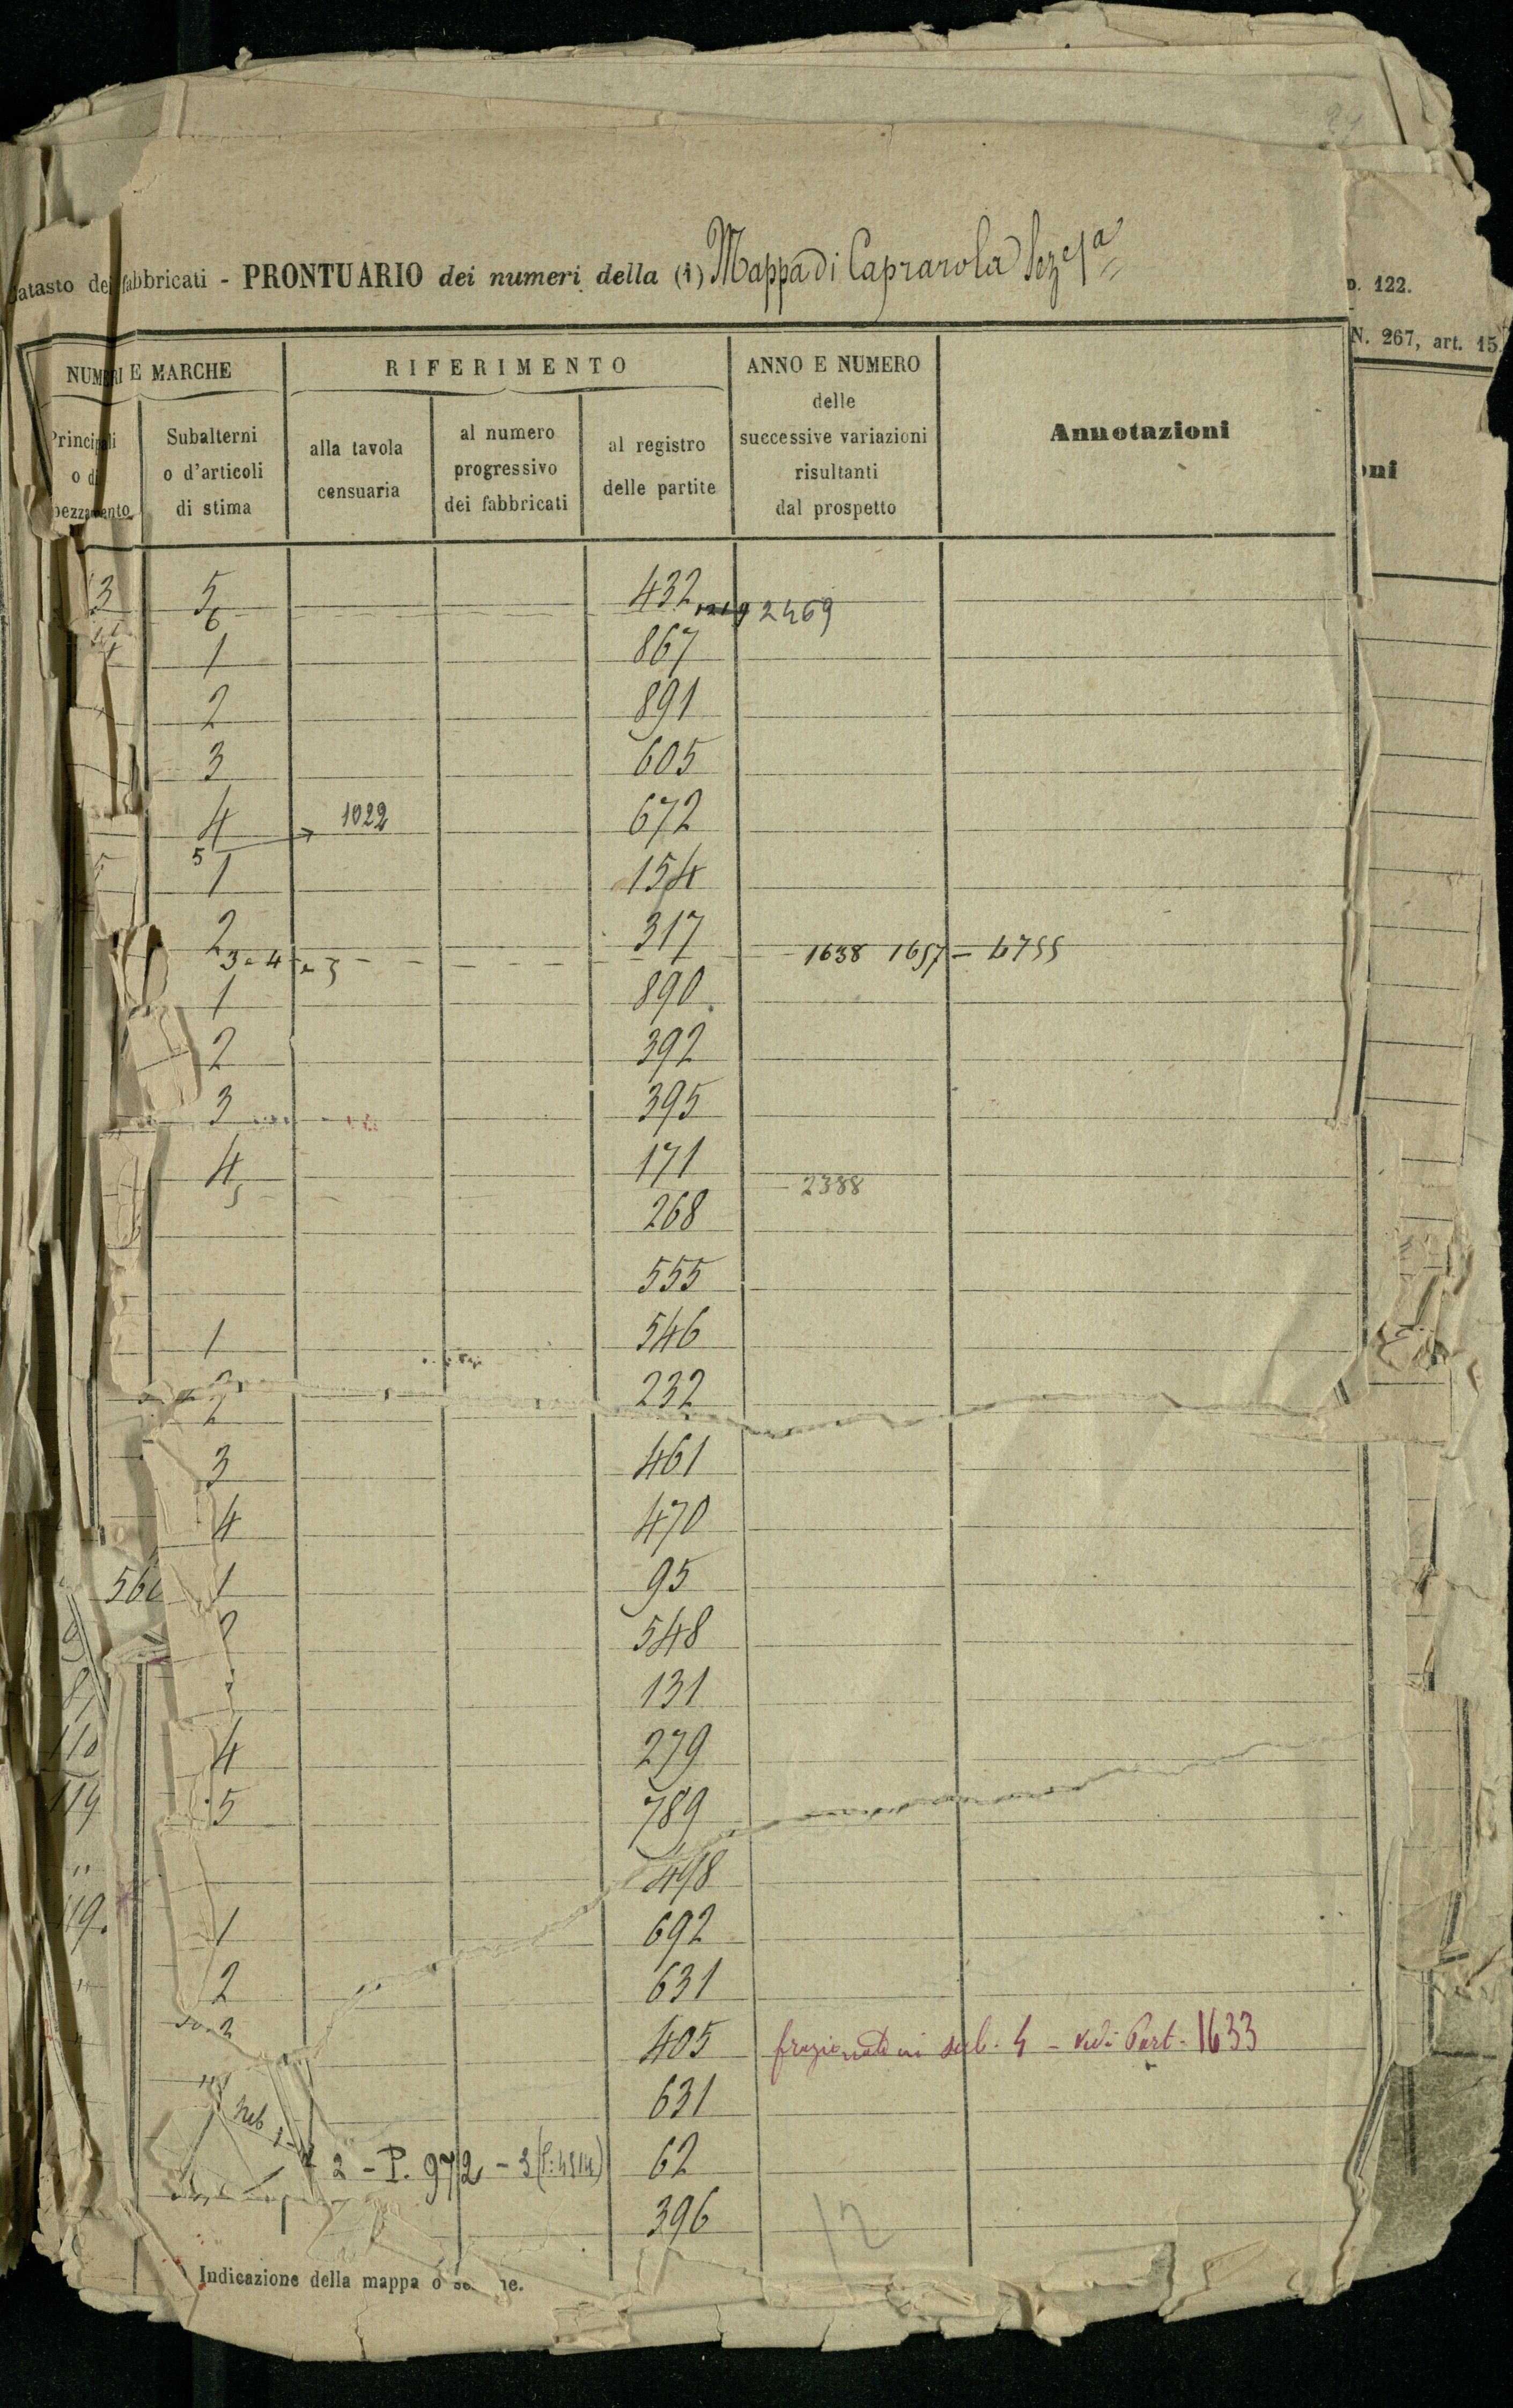 Catasto dei fabbricati - PRONTUARIO dei numeri della (1) Mappa di Caprarola Sez.e 1a
p. 122.
N. 267, art. 15.
NUMERI E MARCHE
RIFERIMENTO
ANNO E NUMERO
delle
successive variazioni
risultanti
dal prospetto
Annotazioni
oni
Principali
o di
pezzamento
Subalterni
o d'articoli
di stima
alla tavola
censuaria
al numero
progressivo
dei fabbricati
al registro
delle partite
3 5 432
6 2469
1 867
2 891
3 605
4 672
5 1022
5 1 154
2 317
3 - 4 - 5 1638 1657 - 4755
1 890
2 392
3 395
4 171
5 2388
268
555
1 546
2 232
3 461
4 470
1 95
2 548
131
4 279
5 789
498
1 692
2 631
3 405 frazionato in sub. 4 - Vedi Part. 1633
631
2 - P. 972 - 3 62
396
12
Indicazione della mappa o